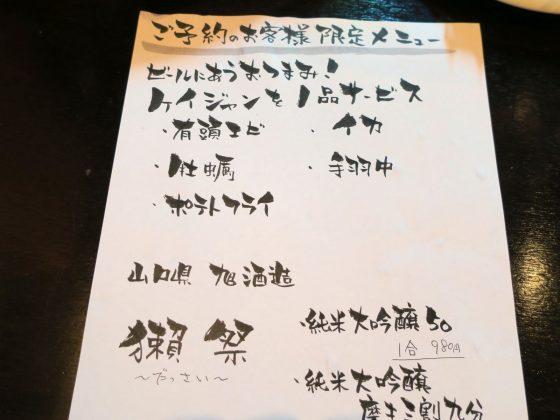 ご予約のお客様限定メニュー
ビールにあうおつまみ!
ケイジャンを1品サービス
・有頭エビ ・イカ
・牡蠣 ・手羽中
・ポテトフライ
山口県 旭酒造
獺祭
〜だっさい〜
・純米大吟醸50
1合 980円
・純米大吟醸
磨き三割九分